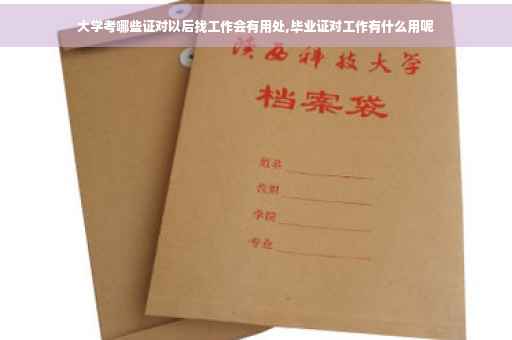 大学考哪些证对以后找工作会有用处,毕业证对工作有什么用呢
陕西科技大学
档案袋
姓名
学院
专业